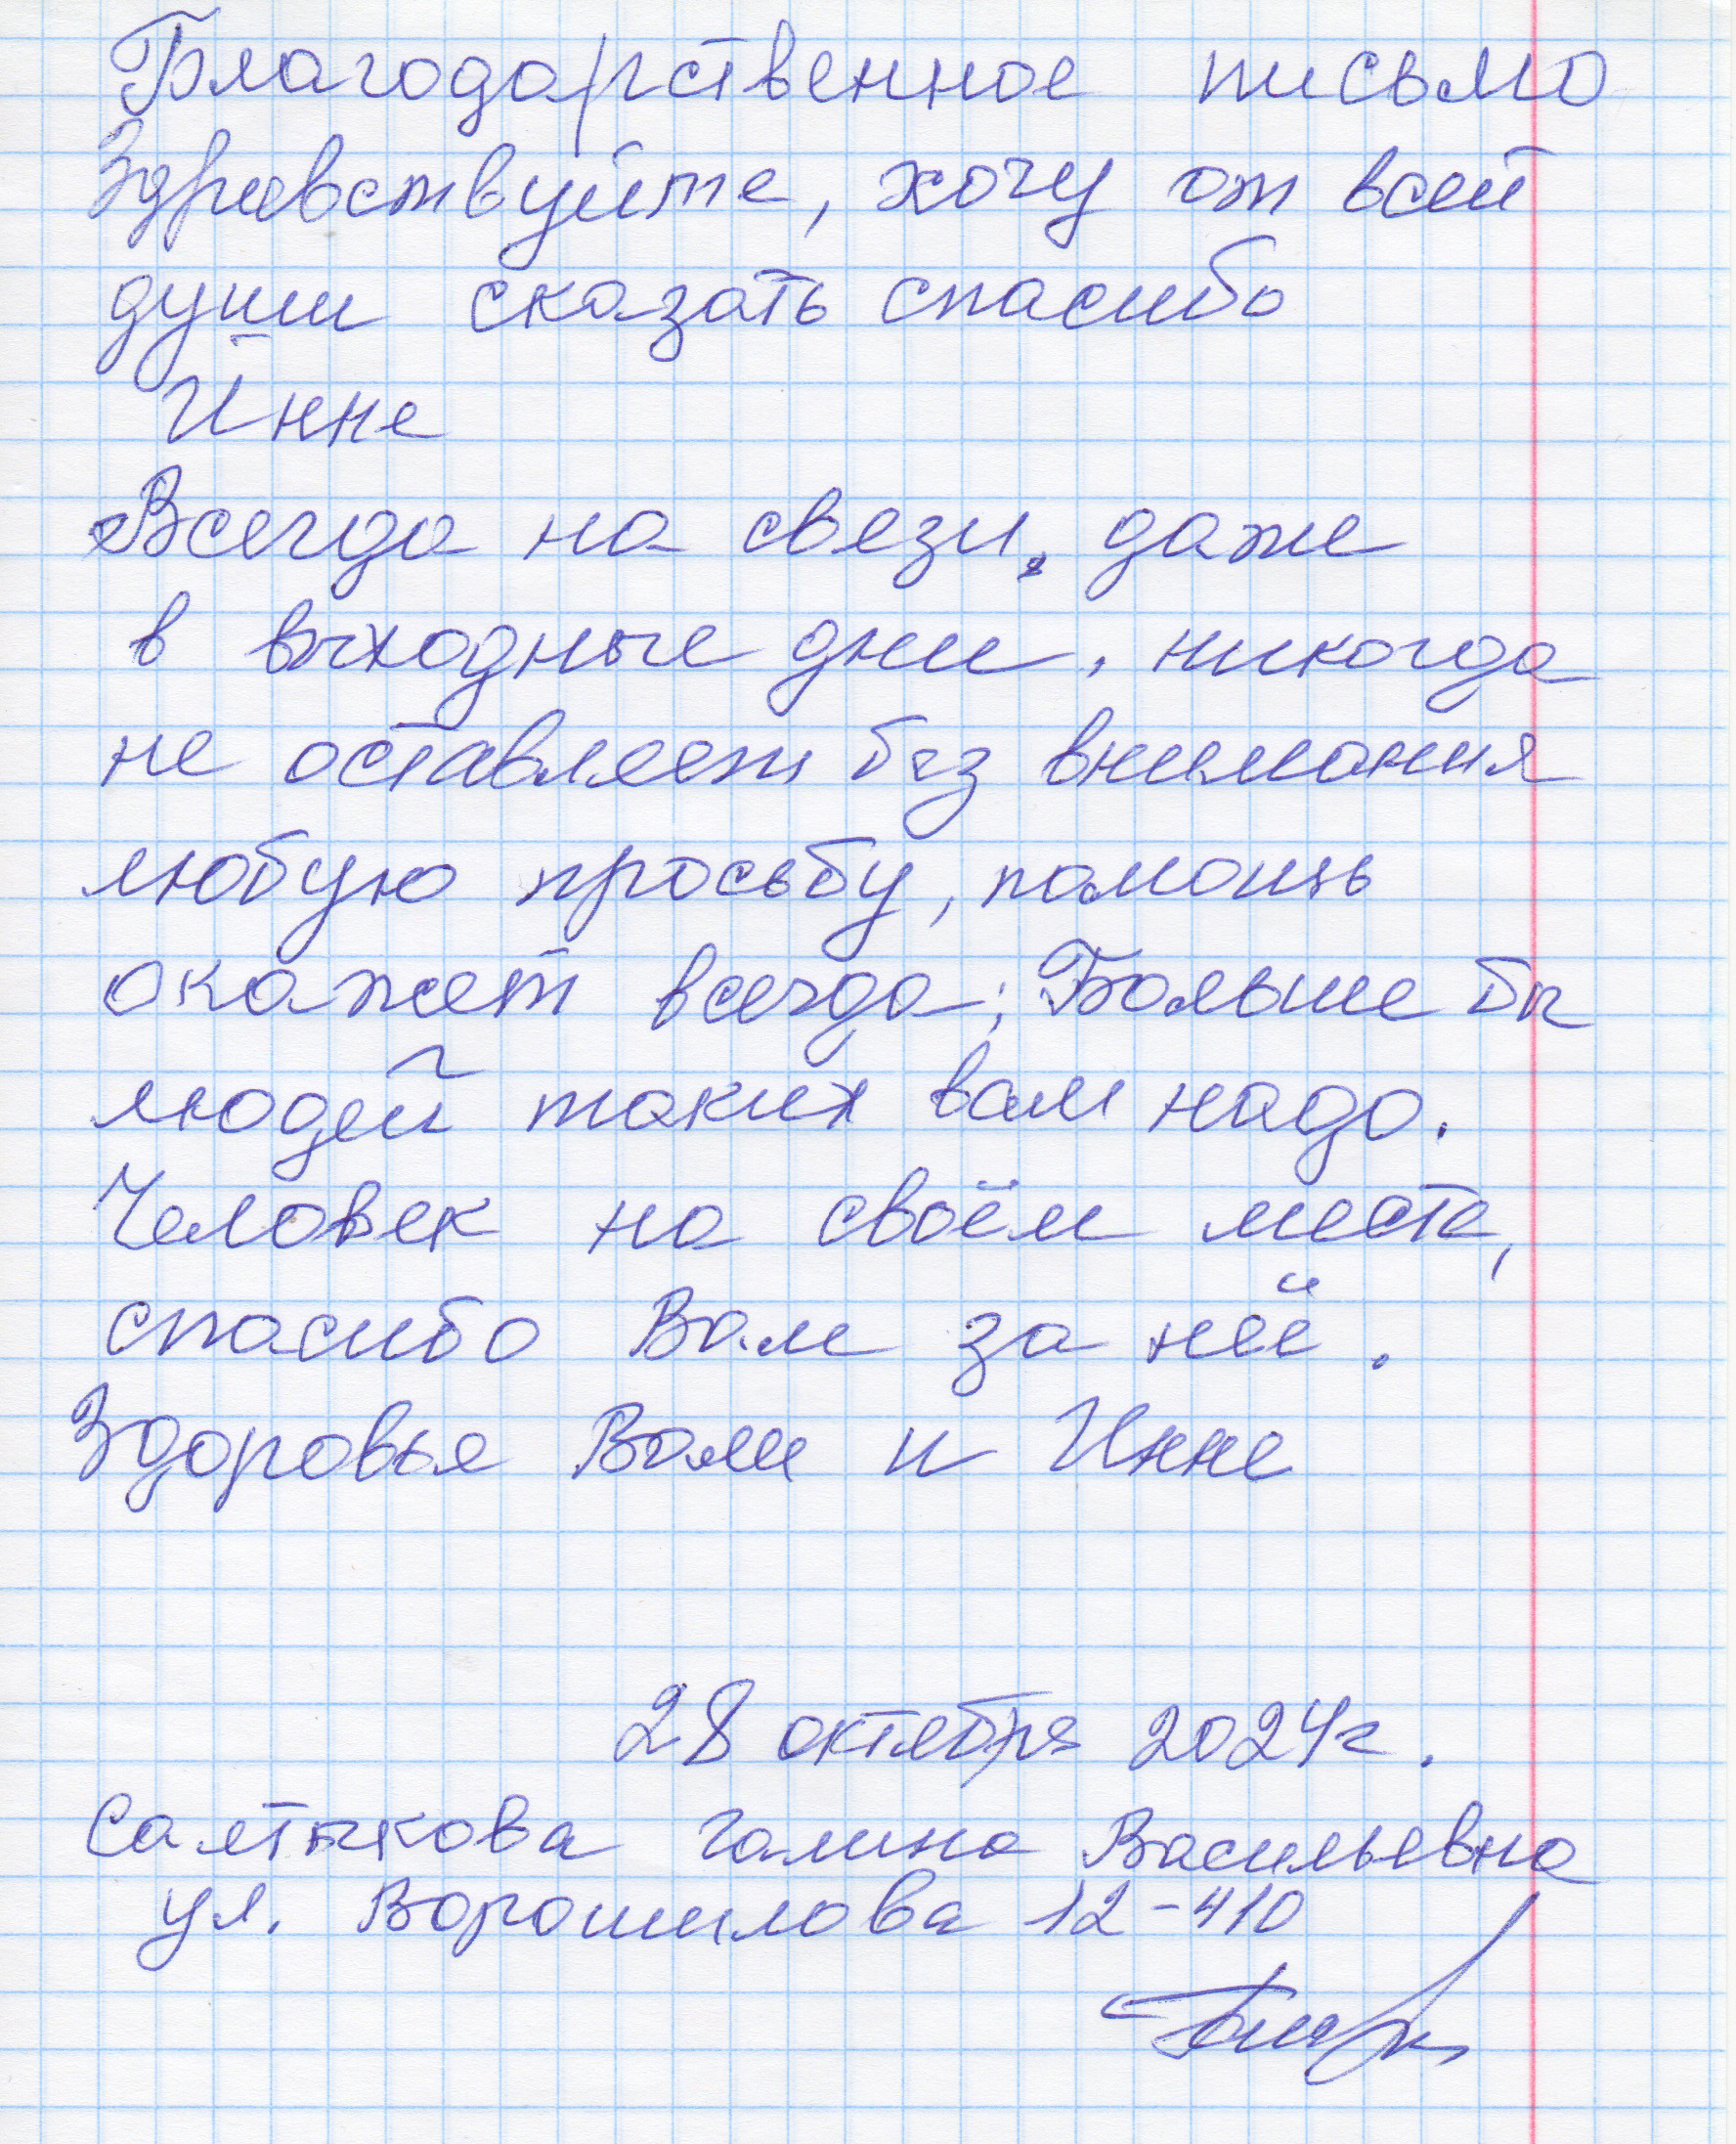 Благодарственное письмо
Здравствуйте, хочу от всей
души сказать спасибо
Инне
Всегда на связи, даже
в выходные дни, никогда
не оставляет без внимания
любую просьбу, помощь
окажет всегда; Больше бы
людей таких вам надо.
Человек на своём месте,
спасибо Вам за неё.
Здоровья Вам и Инне
28 октября 2024г.
Салтыкова Галина Васильевна
ул. Ворошилова 12-410